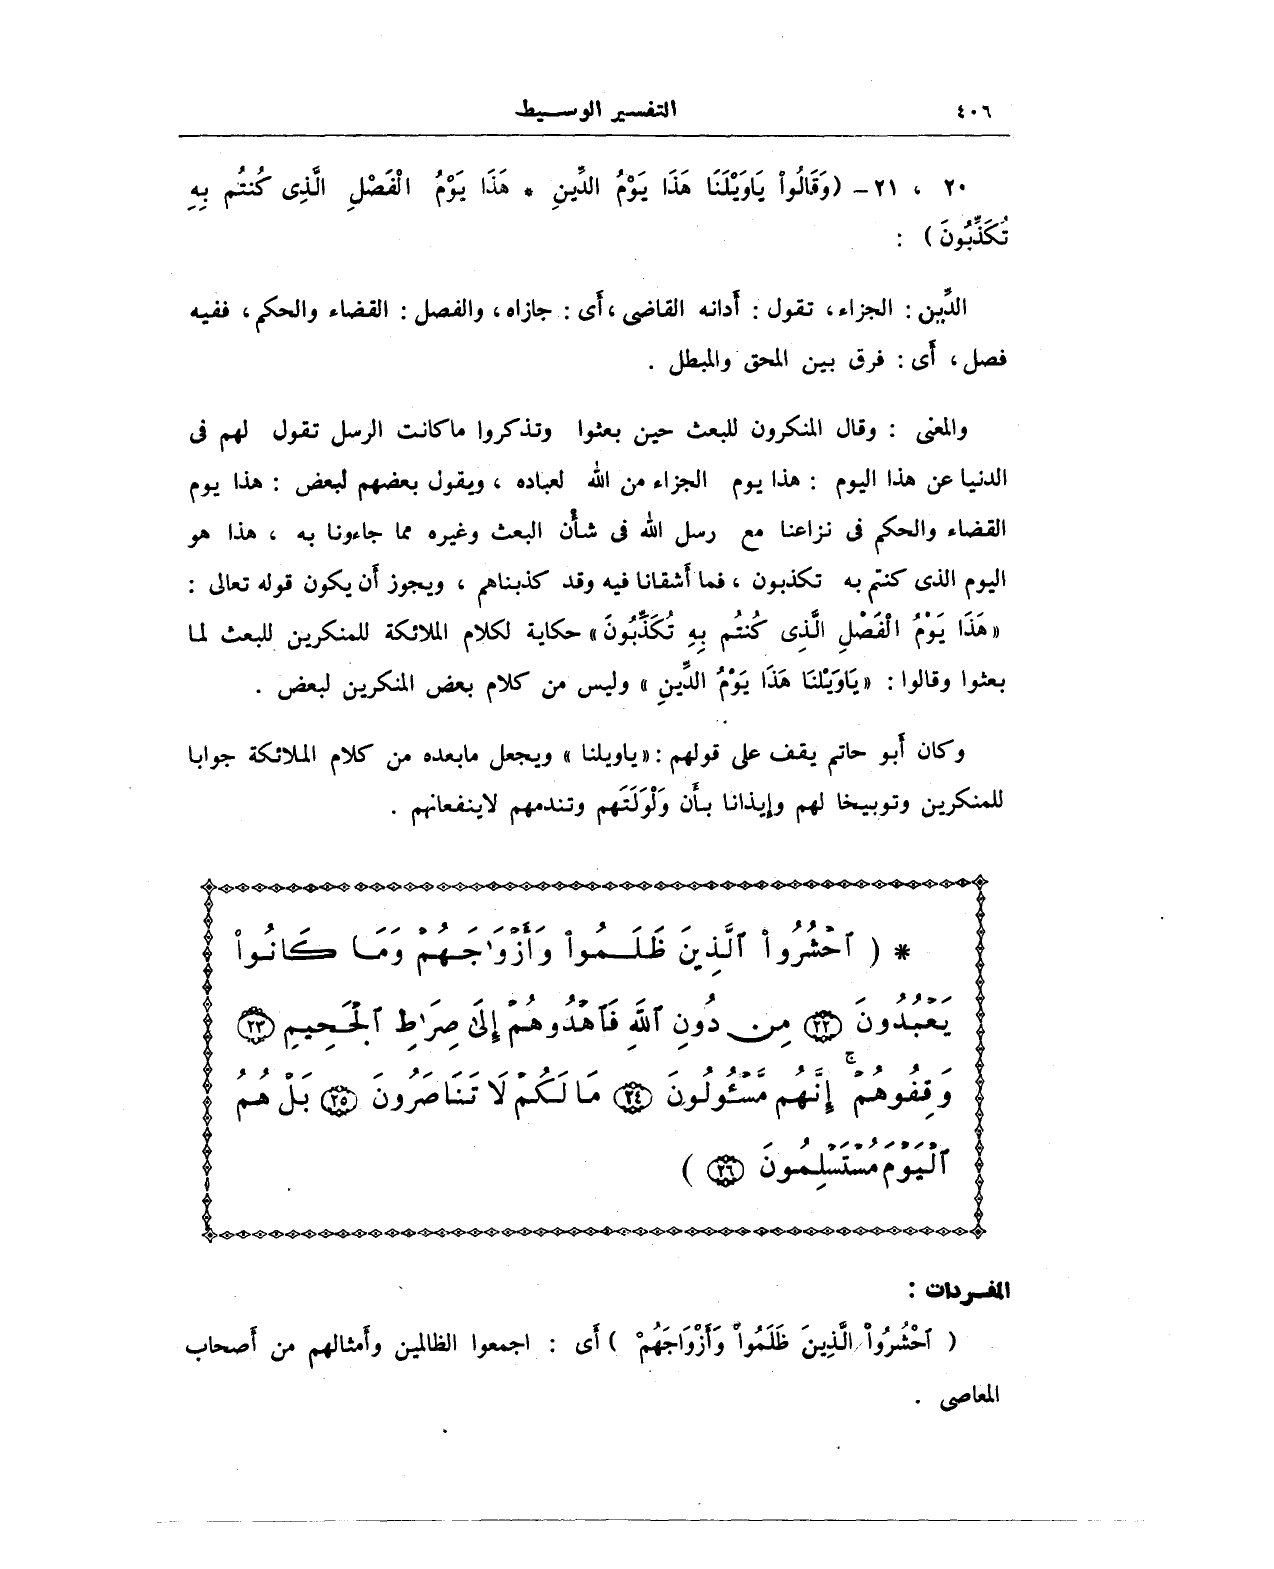 ٤٠٦
التفسير الوسيط
٢٠ ، ٢١ - (وَقَالُواْ يَاوَيْلَنَا هَذَا يَوْمُ الدِّينِ * هَذَا يَوْمُ الْفَصْلِ الَّذِى كُنتُم بِهِ
تُكَذِّبُونَ) :
الدِّين : الجزاء، تقول : أدانه القاضى ، أى : جازاه، والفصل : القضاء والحكم ، ففيه
فصل، أى : فرق بين المحق والمبطل .
والمعنى : وقال المنكرون للبعث حين بعثوا وتذكروا ماكانت الرسل تقول لهم فى
الدنيا عن هذا اليوم : هذا يوم الجزاء من الله لعباده ، ويقول بعضهم لبعض : هذا يوم
القضاء والحكم فى نزاعنا مع رسل الله فى شأن البعث وغيره مما جاءونا به ، هذا هو
اليوم الذى كنتم به تكذبون ، فما أشقانا فيه وقد كذبناهم ، ويجوز أن يكون قوله تعالى :
«هَذَا يَوْمُ الْفَصْلِ الَّذِى كُنتُم بِهِ تُكَذِّبُونَ» حكاية لكلام الملائكة للمنكرين للبعث لما
بعثوا وقالوا : «يَاوَيْلَنَا هَذَا يَوْمُ الدِّينِ» وليس من كلام بعض المنكرين لبعض .
وكان أبو حاتم يقف على قولهم : «ياويلنا» ويجعل مابعده من كلام الملائكة جوابا
للمنكرين وتوبيخا لهم وإيذانا بأن وَلْوَلَتَهم وتندمهم لاينفعانهم .
* ( ٱحْشُرُواْ ٱلَّذِينَ ظَلَمُواْ وَأَزْوَٰجَهُمْ وَمَا كَانُواْ
يَعْبُدُونَ ٢٢ مِن دُونِ ٱللَّهِ فَٱهْدُوهُمْ إِلَىٰ صِرَٰطِ ٱلْجَحِيمِ ٢٣
وَقِفُوهُمْ ۖ إِنَّهُم مَّسْـُٔولُونَ ٢٤ مَا لَكُمْ لَا تَنَاصَرُونَ ٢٥ بَلْ هُمُ
ٱلْيَوْمَ مُسْتَسْلِمُونَ ٢٦ )
المفردات :
( ٱحْشُرُواْ الَّذِينَ ظَلَمُواْ وَأَزْوَاجَهُمْ ) أى : اجمعوا الظالمين وأمثالهم من أصحاب
المعاصى .